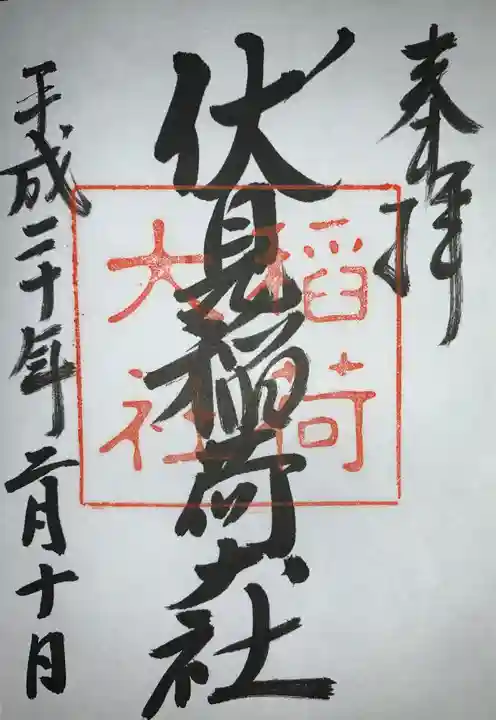 奉拝
伏見稲荷大社
稲荷
大社
平成二十年二月十日